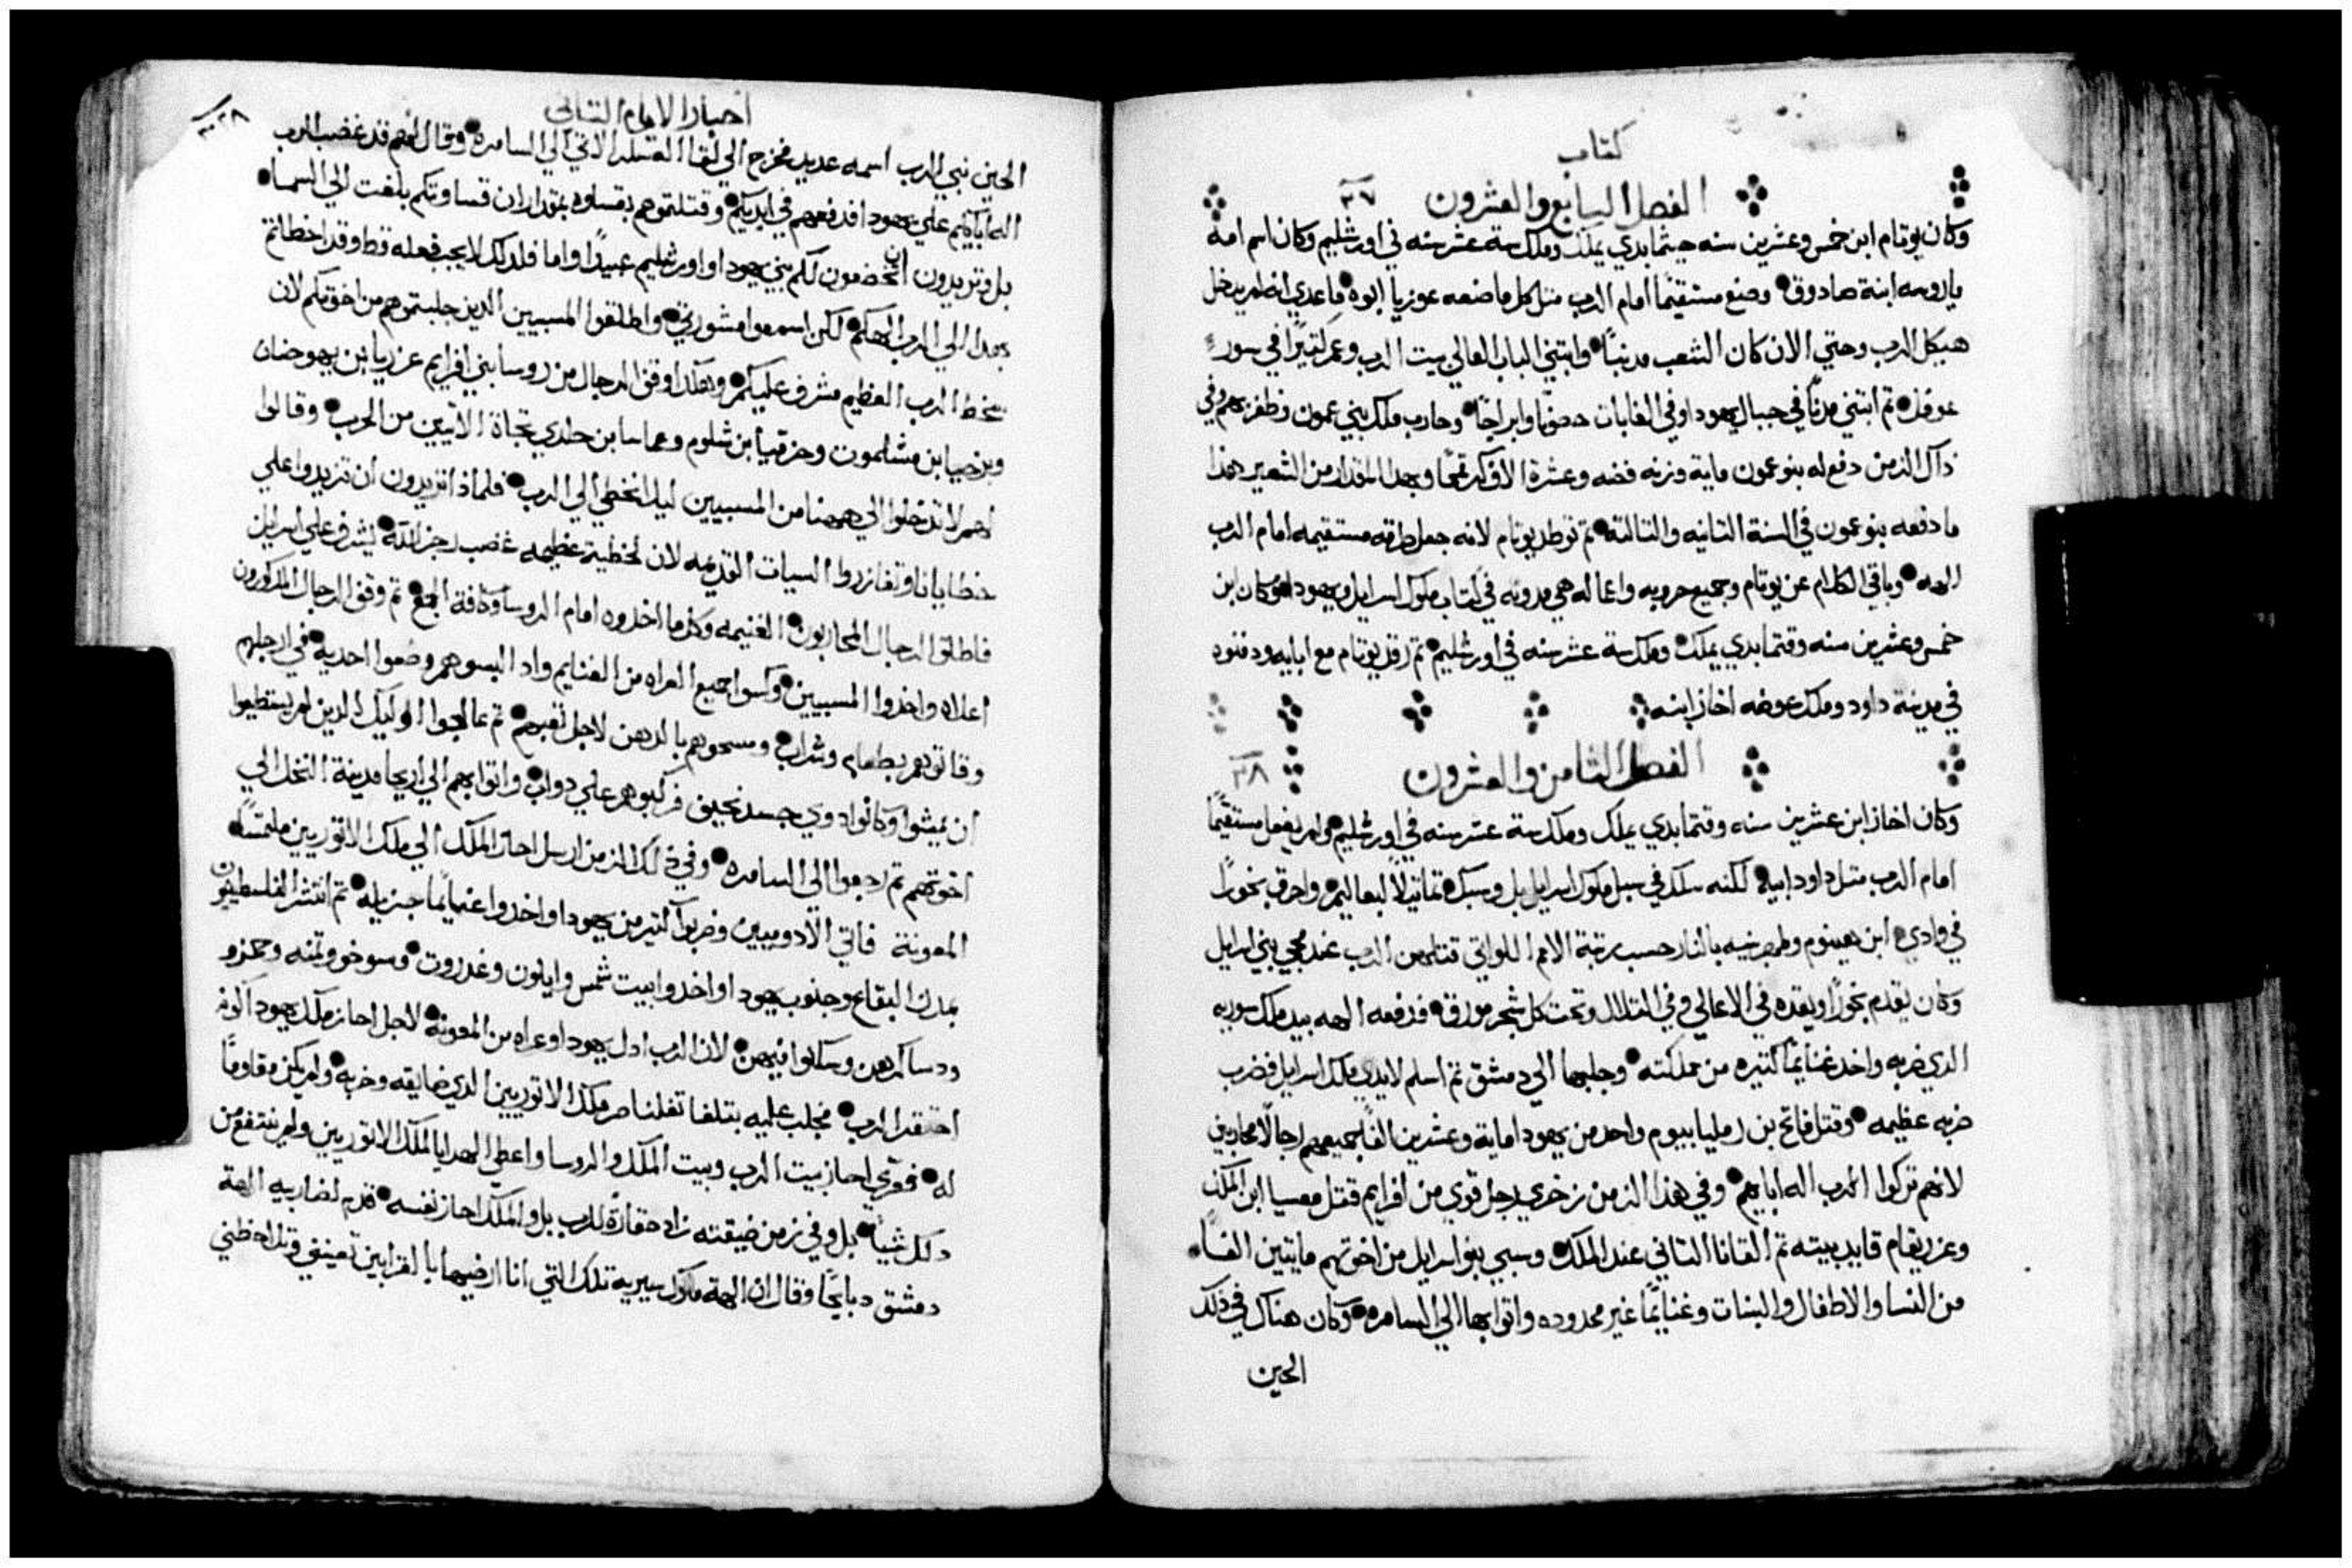 كتاب
الفصل السابع والعشرون ٢٧
وكان يوتام ابن خمس وعشرين سنه حيثما بدي يملك وملك ستة عشر سنه في اورشليم وكان اسم امه
ياروسه ابنة صادوق وصنع مستقيمًا امام الرب مثل كل ما صنعه عوزيا ابوه ما عدي انه لم يدخل
هيكل الرب وحتي الان كان الشعب مدنبًا وابتني الباب العالي بيت الرب وعمر كتيرًا في سور
عوفل تم ابتني مدنًا في جبال يهودا وفي الغابات حصونًا وابراجًا وحارب ملك بني عمون وظفر بهم وفي
داك الزمن دفع له بنو عمون ماية وزنه فضه وعشرة الاف كر قمحًا وبهدا المقدار من الشعير هدا
ما دفعه بنو عمون في السنة التانيه والتالتة تم توطد يوتام لانه جعل طرقه مستقيمه امام الرب
الهه وباقي الكلام عن يوتام وجميع حروبه واعماله هي مدونه في كتاب ملوك اسرايل ويهودا وكان ابن
خمس وعشرين سنه وقتما بدي يملك وملك ستة عشر سنه في اورشليم تم رقد يوتام مع ابايه ودفنوه
في مدينة داود وملك عوضه احاز ابنه
الفصل الثامن والعشرون ٢٨
وكان احاز ابن عشرين سنه وقتما بدي يملك وملك ستة عشر سنه في اورشليم ولم يفعل مستقيمًا
امام الرب متل داود ابيه لكنه سلك في سبل ملوك اسرايل بل وسبك تماتيلاً لبعاليم واحرق بخورًا
في وادي ابن هينوم وطهر بنيه بالنار حسب رتبة الامم اللواتي قتلهن الرب عند مجي بني اسرايل
وكان يقدم بخورًا ويقده في الاعالي وفي التلال وتحت كل شجر مورق فدفعه الهه بيد ملك سوريه
الدي ضربه واخد غنايمًا كتيره من مملكته وجلبها الي دمشق تم اسلم لايدي ملك اسرايل فضرب
ضربه عظيمه وقتل فاقح بن رمليا بيوم واحد من يهودا ماية وعشرين الفًا جميعهم رجالاً محاربين
لانهم تركوا الرب اله ابايهم وفي هدا الزمن زخري رجل قوي من افرايم قتل معسيا ابن الملك
وعزريقام قايد بيته تم القانا التاني عند الملك وسبي بنو اسرايل من اخوتهم مايتين الفًا
من النسا والاطفال والبنات وغنايمًا غير محدوده واتوا بها الي السامره وكان هناك في ذلك
الحين
اخبار الايام التاني
الحين نبي الرب اسمه عديد فخرج الي لقا العسكر الاتي الي السامره وقال لهم قد غضب الرب
اله ابايكم علي يهودا فدفعهم في ايديكم وقتلتموهم بقساوه بمقدار ان قساوتكم بلغت الي السما
بل وتريدون ان تخضعون لكم بني يهودا واورشليم عبيدًا واما فلدلك لا يجب فعله قط وقد اخطاتم
بهدا الي الرب الهكم لكن اسمعوا مشورتي واطلقوا المسبيين الدين جلبتموهم من اخوتكم لان
سخط الرب العظيم مشرف عليكم وهكدا وقف الرجال من روسا بني افرايم عزريا ابن يهوحنان
وبرخيا ابن مشلموت وحزقيا ابن شلوم وعماسا ابن حدلي تجاة الاتيين من الحرب وقالوا
لهم لا تدخلوا الي ههنا من المسبيين ليلا نخطي الي الرب فلمادا تريدون ان تزيدوا علي
خطايانا وتغازروا السيات القديمه لان لخطية عظيمه غضب رجز الله ليشرف علي اسرايل
فاطلقوا الرجال المحاربون الغنيمه وكل ما اخدوه امام الروسا وكافة الجمع تم وقف الرجال المدكورون
اعلاه واخدوا المسبيين وكسوا جميع العراه من الغنايم واد البسوهم وضعوا احدية في ارجلهم
وقاتوهم بطعام وشراب ومسحوهم بالدهن لاجل تعبهم تم عالجوا اوليك الدين لم يستطيعوا
ان يمشوا وكانوا دوي جسد نحيف فركبوهم علي دواب واتوا بهم الي اريحا مدينة النخل الي
اخوتهم تم رجعوا الي السامره وفي ذلك الزمن ارسل احاز الملك الي ملك الاتوريين ملتمسًا
المعونة فاتي الادوميين وضربوا كتير من يهودا واخدوا غنايمًا جزيله تم انتشر الفلسطينيون
بمدن البقاع وجنوب يهودا واخدوا بيت شمس وايلون وغدروت وسوخو وتمنه وجمزو
ودساكرهن وسكنوا فيهن لان الرب ادل يهودا وعراه من المعونة لاجل احاز ملك يهودا كونه
احتقر الرب فجلب عليه بتلغا تفلناصر ملك الاتوريين الدي ضايقه وخربه ولم يكن مقاومًا
له فعري احاز بيت الرب وبيت الملك والروسا واعطي الهدايا لملك الاتوريين ولم ينتفع من
دلك شيًا بل وفي زمن ضيقته زاد حقارة للرب بل والملك احاز نفسه قدم لضاربيه الهة
دمشق دبايحًا وقال ان الهة ملوك سيريه تلك التي انا ارضيها بالقرابين تعينني وتلاحظني